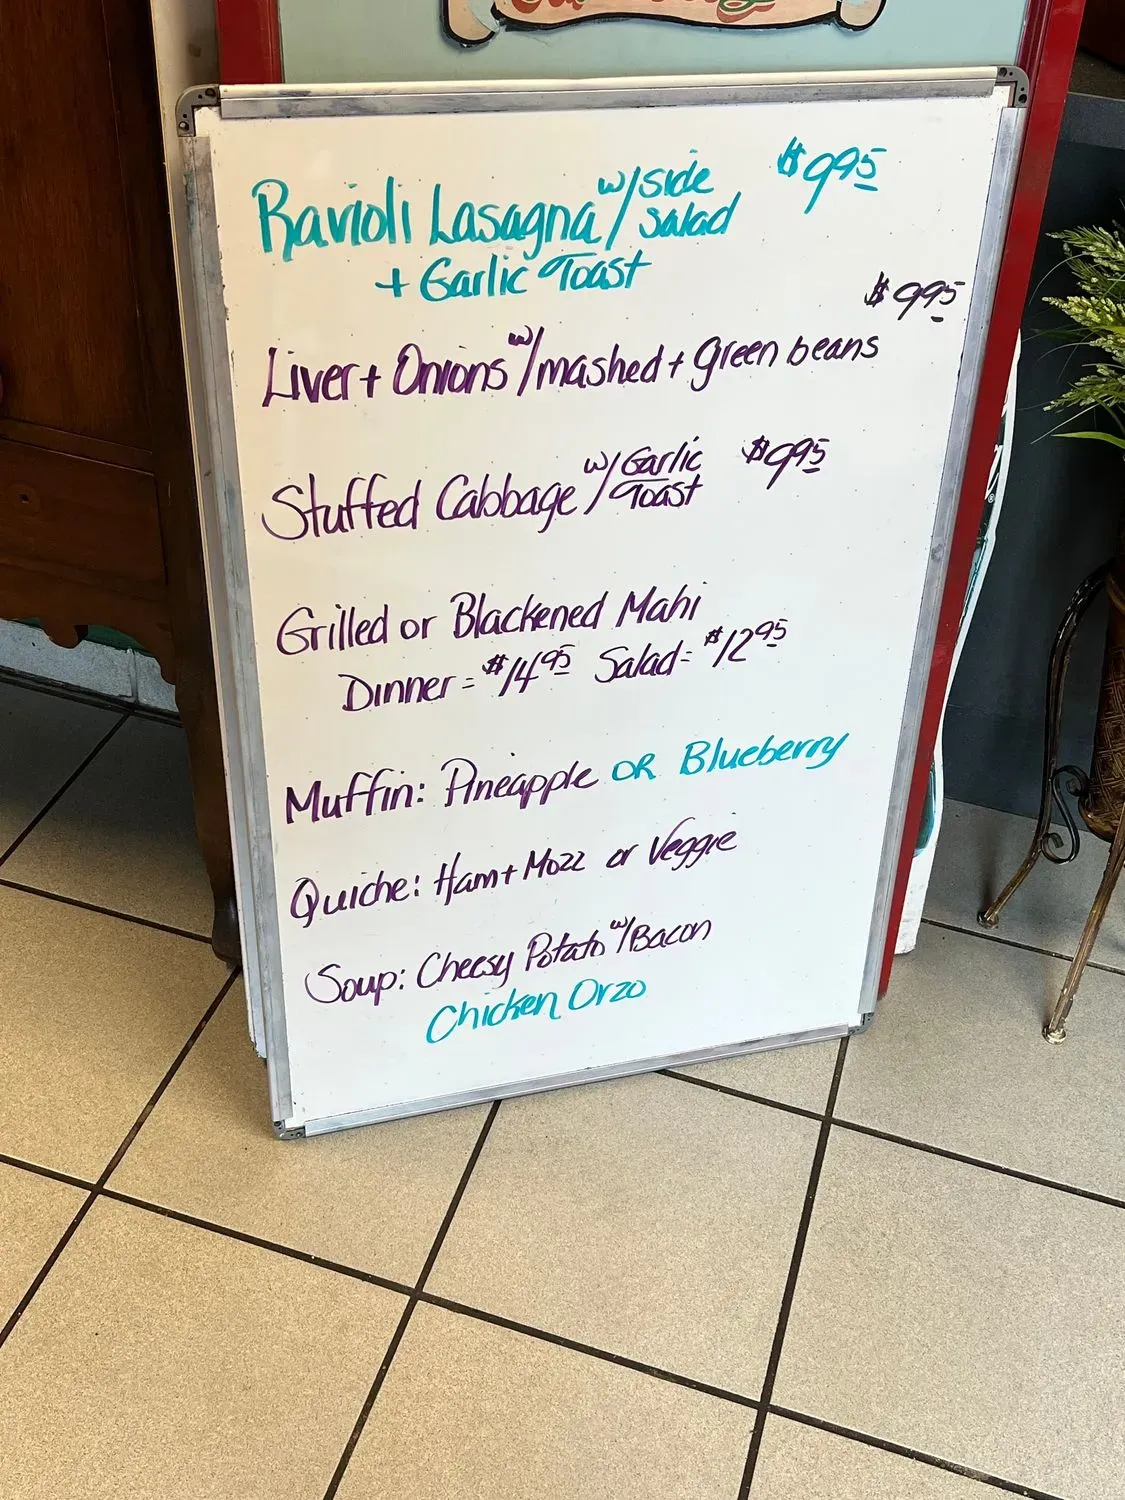 Ravioli Lasagna w/ side salad $9.95
+ Garlic Toast
$9.95
Liver + Onions w/ mashed + green beans
Stuffed Cabbage w/ Garlic Toast $9.95
Grilled or Blackened Mahi
Dinner = $14.95 Salad = $12.95
Muffin: Pineapple OR Blueberry
Quiche: Ham + Mozz or Veggie
Soup: Cheesy Potato w/ Bacon
Chicken Orzo